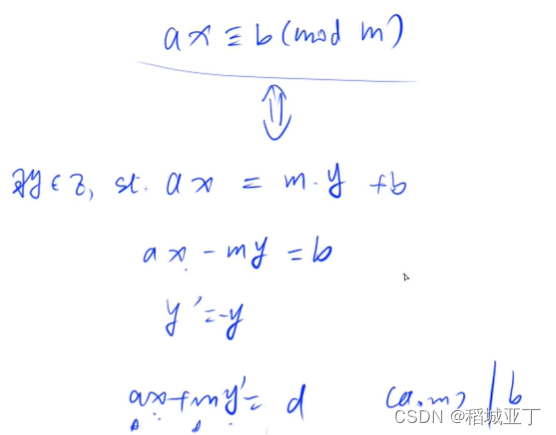 ax ≡ b (mod m)
⇕
∃y ∈ Z, st. ax = m·y + b
ax - my = b
y' = -y
ax + my' = d (a.m) | b
CSDN @稻城亚丁